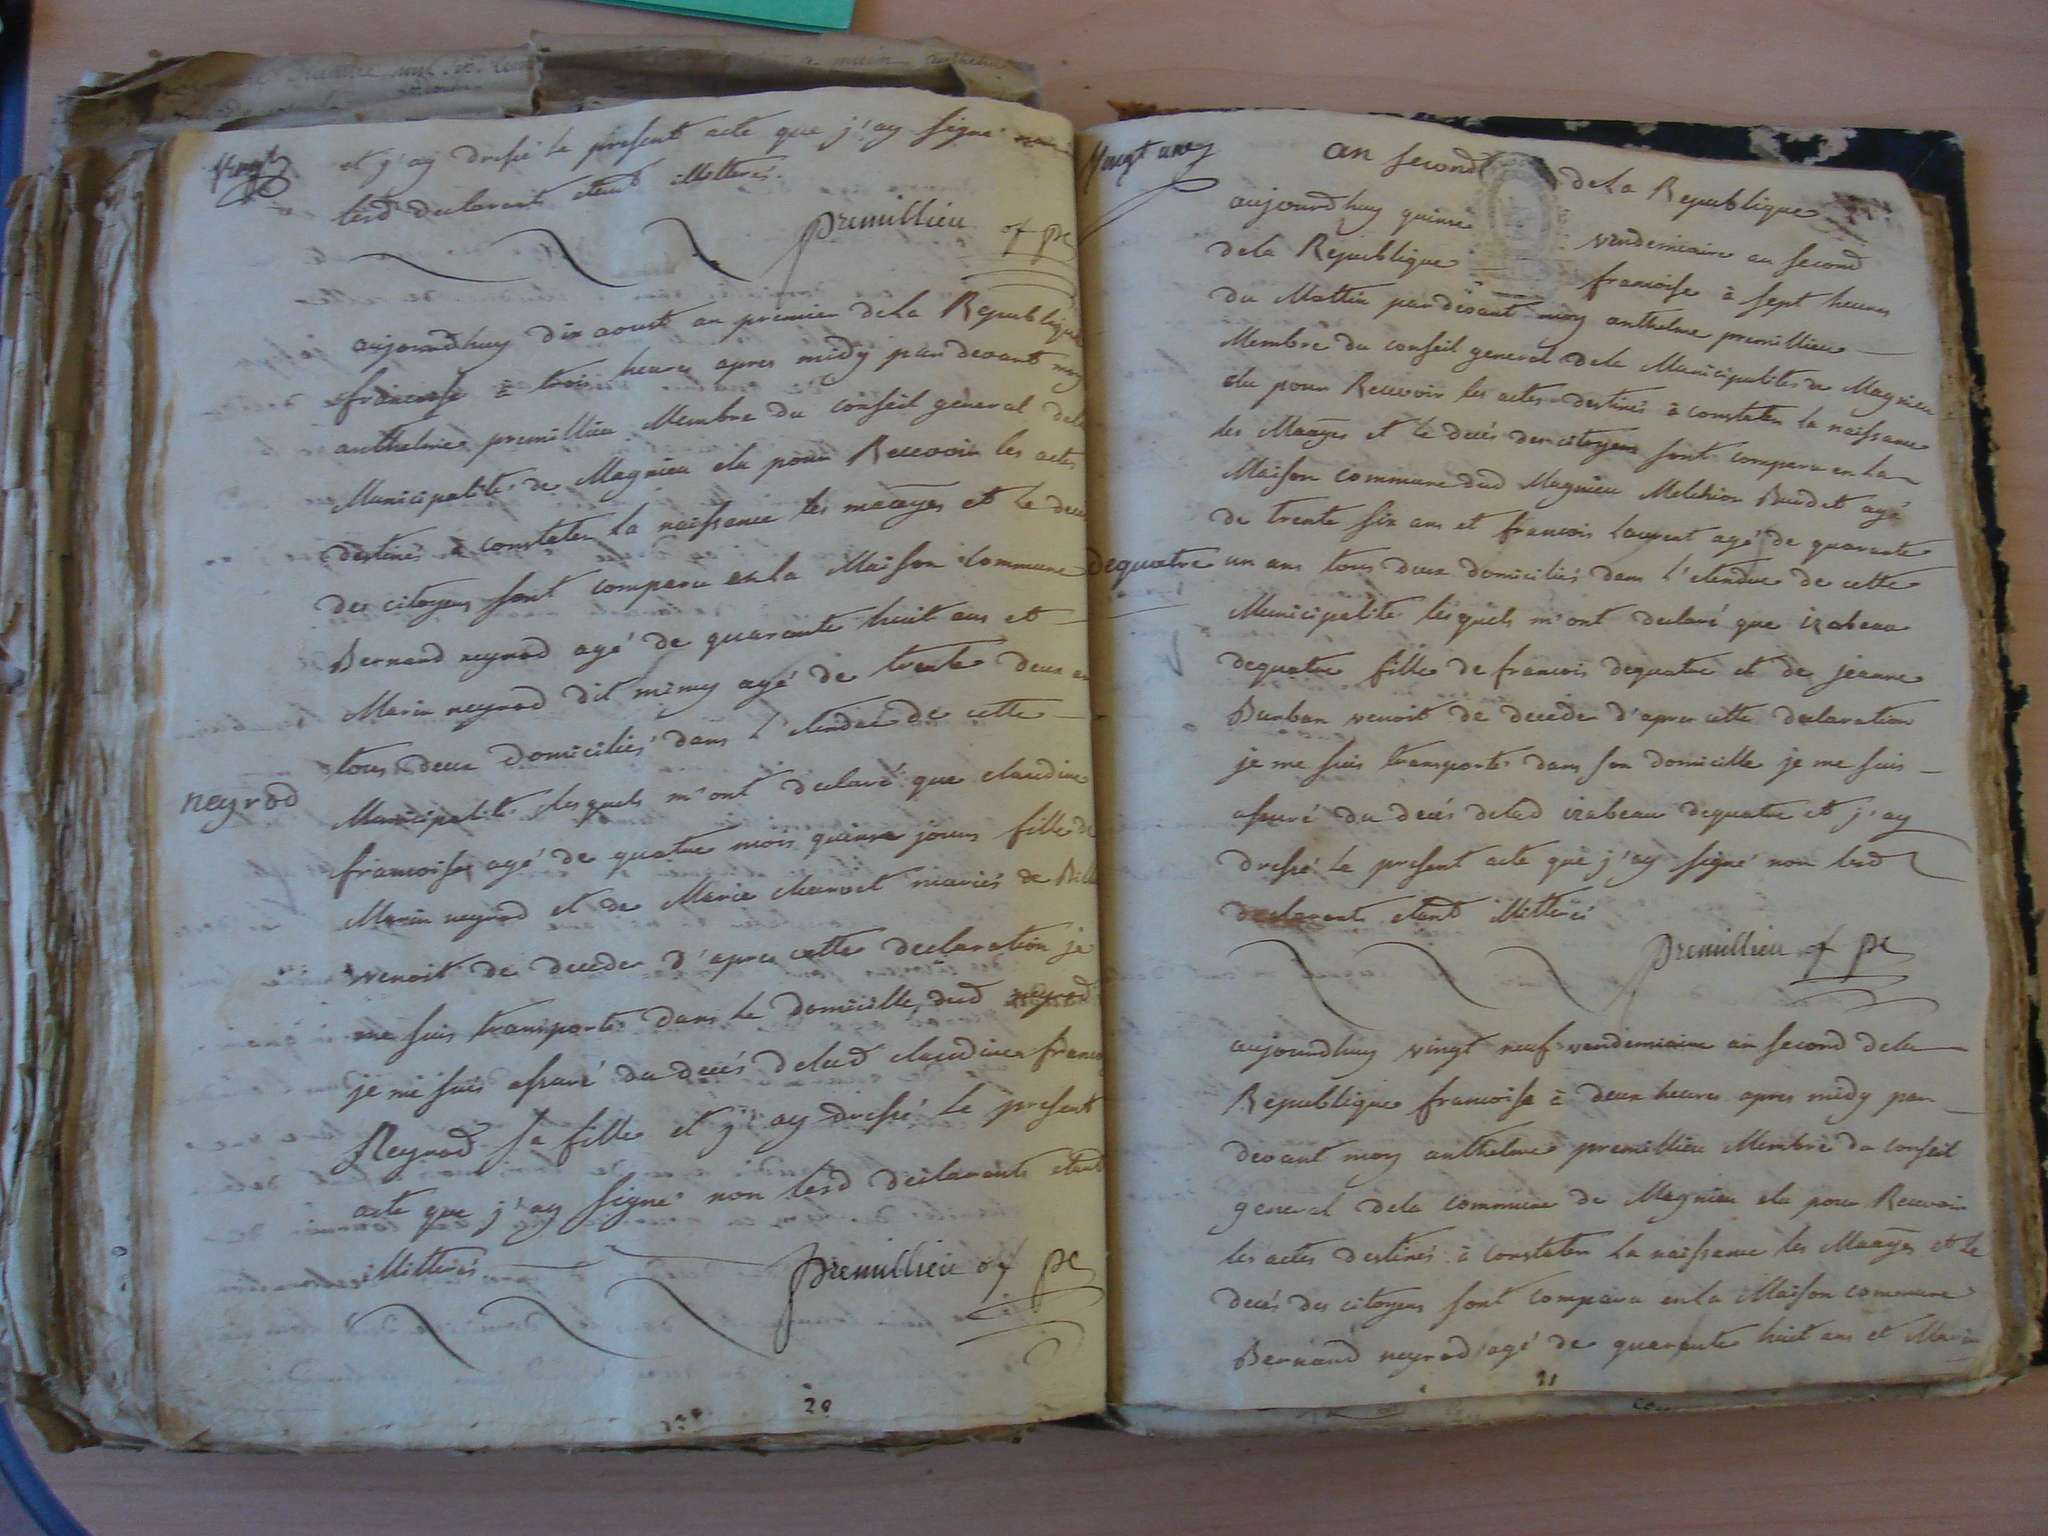 Vingt
et j'ay dressé le present acte que j'ay signé
lesd declarant etant illitteres.
premillieu of pc
aujourdhuy dix aoust an premier de la Republique
francoise à trois heures apres midy par devant moy
anthelme premillieu Membre du conseil general dela
Municipalité de Magnieu elu pour Recevoir les actes
destinés à constater la naissance les mariages et le deces
des citoyens sont comparu en la Maison commune
Bernard neyrod agé de quarante huit ans et
Marin neyrod dit mimy agé de trente deux an
tous deux domiciliés dans l'etendue de cette
neyrod
Municipalité lesquels m'ont declaré que claudine
francoise agé de quatre mois quinse jours fille de
Marin neyrod et de Marie mariés de
venoit de deceder d'apres cette declaration je
me suis transporté dans le domicille dud neyrod
je me suis assuré du decés delad claudine
Neyrod sa fille et j'ay dressé le present
acte que j'ay signé non lesd déclarants etant
illitterés
premillieu of pc
20
Vingt une
an second de la Republique
aujourdhuy quinse vendemiaire an second
dela Republique francoise à sept heures
du Mattin par devant moy anthelme premillieu
Membre du conseil general dela Municipalité de Magnieu
elu pour Recevoir les actes destinés à constater la naissance
les Maages et le decés des citoyens sont comparu en la
Maison commune dud Magnieu Melchior Burdet agé
de trente six ans et francois Laurent agé de quarante
dequatre
un ans tous deux domiciliés dans l'etendue de cette
Municipalité lesquels m'ont declaré que izabeau
dequatre fille de francois dequatre et de jeanne
Burban venoit de deceder d'apres cette declaration
je me suis transporté dans son domicille je me suis
assuré du decés delad izabeau dequatre et j'ay
dressé le present acte que j'ay signé non lesd
declarant etant illitterés
premillieu of pc
aujourdhuy vingt neuf vendemiaire an second dela
Republique francoise à deux heures apres midy par
devant moy anthelme premillieu Membre du conseil
general dela commune de Magnieu elu pour Recevoir
les actes destinés à constater la naissance les Maages et le
decés des citoyens sont comparu en la Maison commune
Bernard neyrod agé de quarante huit ans et Marin
21